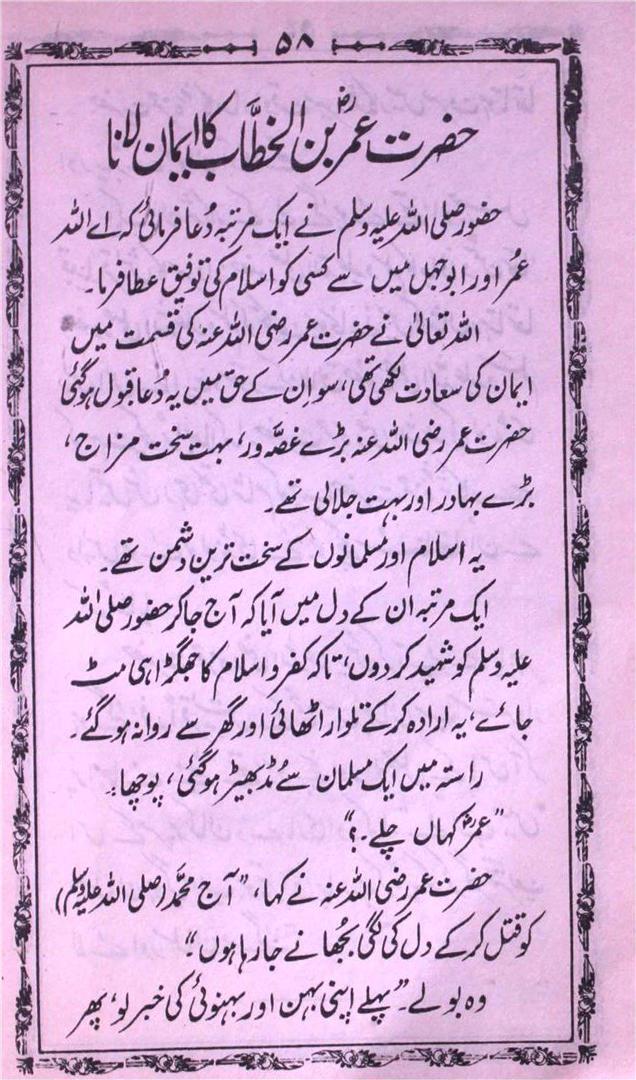 ۵۸
حضرت عمرؓ بن الخطَّاب کا ایمان لانا
حضور صلی اللہ علیہ وسلم نے ایک مرتبہ دُعا فرمائی کہ اے اللہ
عمُر اور ابوجہل میں سے کسی کو اسلام کی توفیق عطا فرما۔
اللہ تعالیٰ نے حضرت عمر رضی اللہ عنہ کی قسمت میں
ایمان کی سعادت لکھی تھی، سو اِن کے حق میں یہ دُعا قبول ہوگئی
حضرت عمر رضی اللہ عنہ بڑے غصَّہ ور، بہت سخت مزاج،
بڑے بہادر اور بہت جلالی تھے۔
یہ اسلام اور مُسلمانوں کے سخت ترین دشمن تھے۔
ایک مرتبہ ان کے دل میں آیا کہ آج جا کر حضور صلی اللہ
علیہ وسلم کو شہید کر دوں، تاکہ کفر و اسلام کا جھگڑا ہی مٹ
جائے، یہ ارادہ کرکے تلوار اٹھائی اور گھر سے روانہ ہوگئے۔
راستہ میں ایک مسلمان سے مُڈبھیڑ ہوگئی، پوچھا:۔
"عمرؓ کہاں چلے۔؟"
حضرت عمر رضی اللہ عنہ نے کہا، "آج محمَّد (صلی اللہ علیہ وسلم)
کو قتل کرکے دل کی لگی بُجھانے جارہا ہوں"؛
وہ بولے۔ "پہلے اپنی بہن اور بہنوئی کی خبر لو، پھر